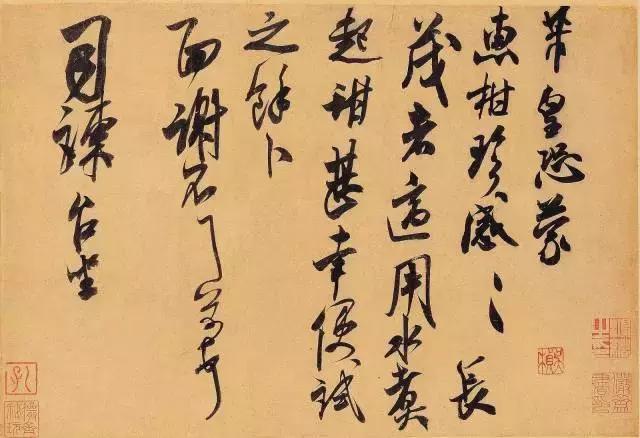 芾皇恐蒙
惠柑珍感〻長
茂者適用水煮
起甜甚幸便試
之餘卜
面謝不具芾頓首
司諫台坐